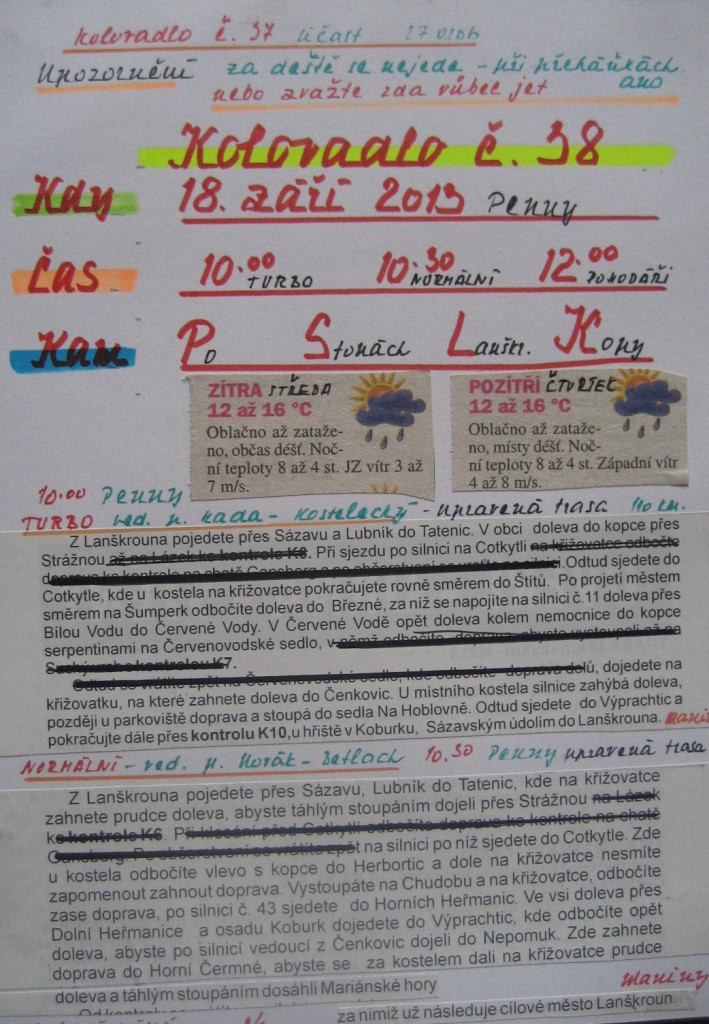 Koloradlo č. 37 účast 27 osob
Upozornění za deště se nejede - při přeháňkách ano
nebo zvažte zda vůbec jet
Koloradlo č. 38
Kdy 18. září 2013 Penny
Čas 10.00 TURBO 10.30 NORMÁLNÍ 12.00 POHODÁŘI
Kam Po Stonách Lanškr. Kony
ZÍTRA STŘEDA
12 až 16 °C
Oblačno až zataže-
no, občas déšť. Noč-
ní teploty 8 až 4 st. JZ vítr 3 až
7 m/s.
POZÍTŘÍ ČTVRTEK
12 až 16 °C
Oblačno až zataže-
no, místy déšť. Noč-
ní teploty 8 až 4 st. Západní vítr
4 až 8 m/s.
10.00 Penny
TURBO ved. p. Kada - Kostelecký - upravená trasa 110 km.
Z Lanškrouna pojedete přes Sázavu a Lubník do Tatenic. V obci doleva do kopce přes
Strážnou až na Lázek ke kontrole K6. Při sjezdu po silnici na Cotkytli na křižovatce odbočte
doprava ke kontrole na chatě a po občerstvení se vraťte na silnici. Odtud sjedete do
Cotkytle, kde u kostela na křižovatce pokračujete rovně směrem do Štítů. Po projetí městem
směrem na Šumperk odbočíte doleva do Březné, za níž se napojíte na silnici č.11 doleva přes
Bílou Vodu do Červené Vody. V Červené Vodě opět doleva kolem nemocnice do kopce
serpentinami na Červenovodské sedlo, v němž odbočíte doprava, abyste vystoupali až na
Suchý vrch kontrolou K7.
Odtud se vrátíte zpět na Červenovodské sedlo, kde odbočíte doprava dolů, dojedete na
křižovatku, na které zahnete doleva do Čenkovic. U místního kostela silnice zahýbá doleva,
později u parkoviště doprava a stoupá do sedla Na Hoblovně. Odtud sjedete do Výprachtic a
pokračujte dále přes kontrolu K10,u hřiště v Koburku, Sázavským údolím do Lanškrouna.
NORMÁLNÍ - ved. p. Horák - Betlach 10.30 Penny upravená trasa
Z Lanškrouna pojedete přes Sázavu, Lubník do Tatenic, kde na křižovatce
zahnete prudce doleva, abyste táhlým stoupáním dojeli přes Strážnou na Lázek
ke kontrole K6. Při klesání před Cotkytlí odbočíte doprava ke kontrole na chatě
Po občerstvení se vrátíte zpět na silnici po níž sjedete do Cotkytle. Zde
u kostela odbočíte vlevo s kopce do Herbortic a dole na křižovatce nesmíte
zapomenout zahnout doprava. Vystoupáte na Chudobu a na křižovatce, odbočíte
zase doprava, po silnici č. 43 sjedete do Horních Heřmanic. Ve vsi doleva přes
Dolní Heřmanice a osadu Koburk dojedete do Výprachtic, kde odbočíte opět
doleva, abyste po silnicí vedoucí z Čenkovic dojeli do Nepomuk. Zde zahnete
doprava do Horní Čermné, abyste se za kostelem dali na křižovatce prudce
doleva a táhlým stoupáním dosáhli Mariánské hory
za nimiž už následuje cílové město Lanškroun.